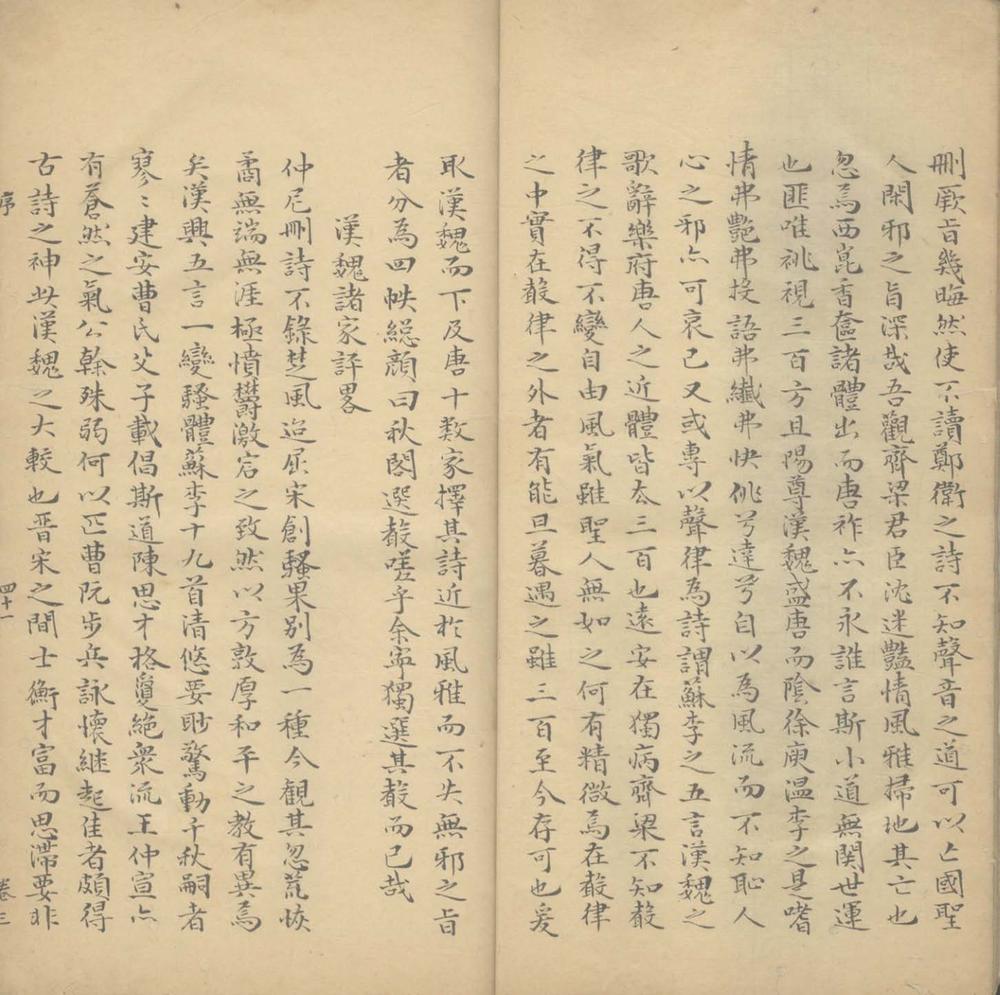 刪厥旨幾晦然使不讀鄭衛之詩不知聲音之道可以亡國聖
人閑邪之旨深哉吾觀齊梁君臣沈迷豔情風雅掃地其亡也
忽焉西崑香奩諸體出而唐祚亦不永誰言斯小道無関世運
也匪唯祧視三百方且陽尊漢魏盛唐而陰徐庾溫李之是嗜
情弗艷弗投語弗纖弗快佻兮達兮自以為風流而不知恥人
心之邪亦可哀已又或專以聲律為詩謂蘇李之五言漢魏之
歌辭樂府唐人之近體皆厺三百也遠安在獨病齊梁不知聲
律之不得不變自由風氣雖聖人無如之何有精微焉在聲律
之中實在聲律之外者有能旦暮遇之雖三百至今存可也爰
取漢魏而下及唐十数家擇其詩近扵風雅而不失無邪之旨
者分為四帙総顏曰秋閣選聲嗟乎余寧獨選其聲而已哉
漢魏諸家評畧
仲尼刪詩不錄楚風迨屈宋創騷果別為一種今觀其忽荒恢
矞無端無涯極憤欝激宕之致然以方敦厚和平之教有異焉
矣漢興五言一變騷體蘇李十九首清悠要眇驚動千秋嗣者
寥〻建安曹氏父子載倡斯道陳思才格敻絕衆流王仲宣亦
有蒼然之氣公幹殊弱何以匹曹阮步兵詠懷継起佳者頗得
古詩之神此漢魏之大較也晋宋之間士衡才富而思滯要非
序
四十一
卷三